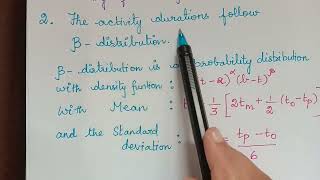 2. The activity durations follow
β - distribution.
β - distribution is probability distibution
with density funtion : (t - a)^α (b - t)^β
with Mean : 1/3 [2tm + 1/2 (t0 - tp)]
and the Standard
deviation : = tp - t0 / 6